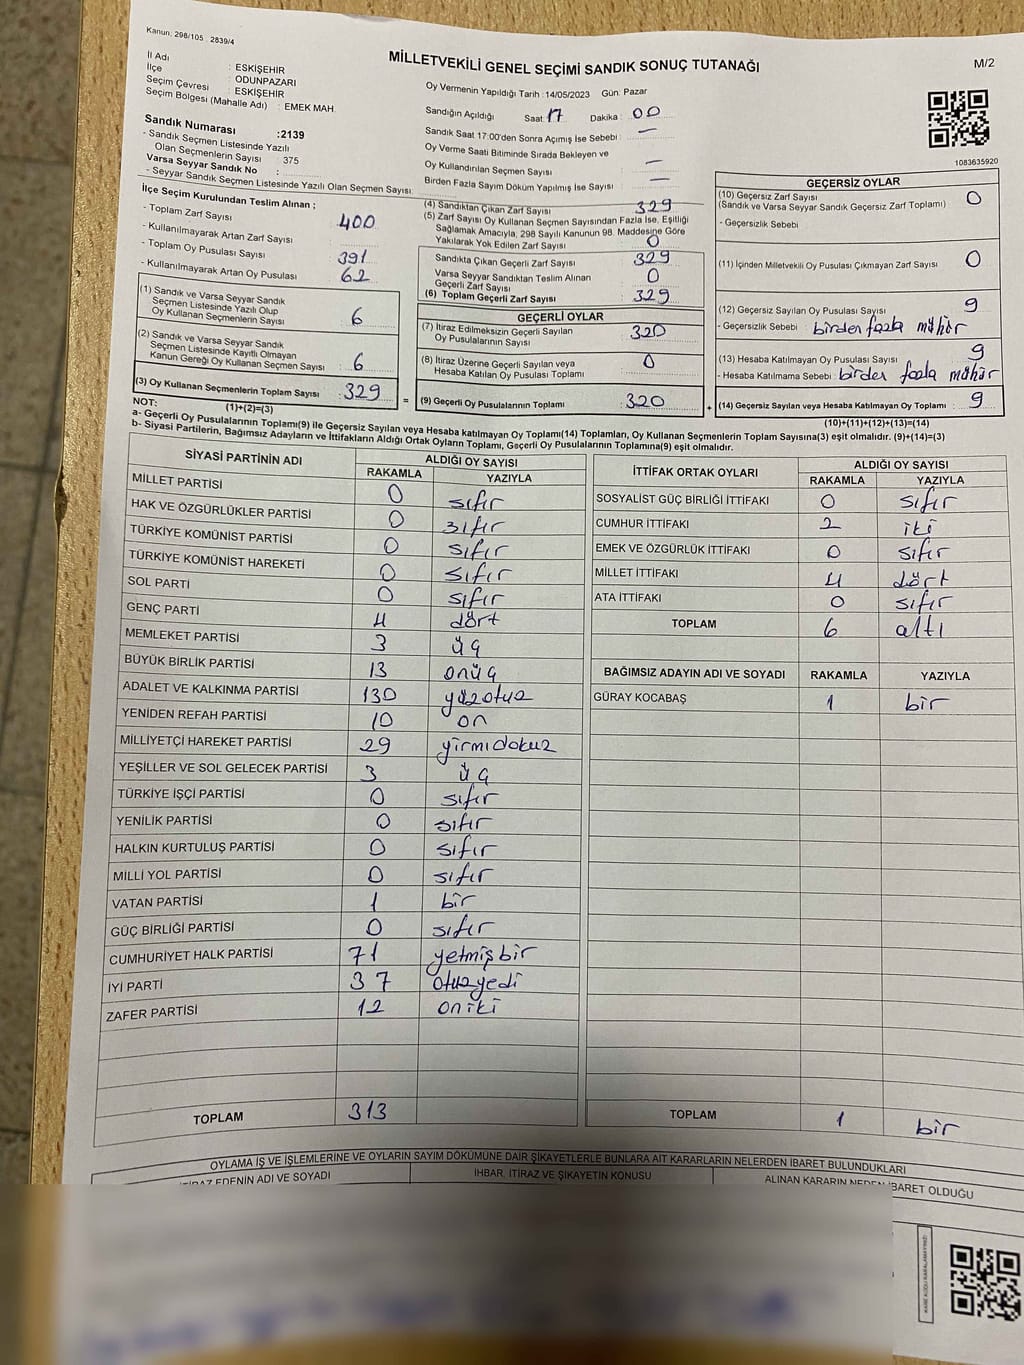 Kanun: 298/105 2839/4
MİLLETVEKİLİ GENEL SEÇİMİ SANDIK SONUÇ TUTANAĞI
M/2
İl Adı : ESKİŞEHİR
İlçe : ODUNPAZARI
Seçim Çevresi : ESKİŞEHİR
Seçim Bölgesi (Mahalle Adı) : EMEK MAH.
Sandık Numarası :2139
- Sandık Seçmen Listesinde Yazılı
Olan Seçmenlerin Sayısı : 375
Varsa Seyyar Sandık No :
- Seyyar Sandık Seçmen Listesinde Yazılı Olan Seçmen Sayısı:
Oy Vermenin Yapıldığı Tarih :14/05/2023 Gün: Pazar
Sandığın Açıldığı Saat: 17 Dakika : 00
Sandık Saat 17:00'den Sonra Açılmış İse Sebebi : —
Oy Verme Saati Bitiminde Sırada Bekleyen ve
Oy Kullandırılan Seçmen Sayısı : —
Birden Fazla Sayım Döküm Yapılmış İse Sayısı : —
1083635920
İlçe Seçim Kurulundan Teslim Alınan ;
- Toplam Zarf Sayısı : 400
- Kullanılmayarak Artan Zarf Sayısı :
- Toplam Oy Pusulası Sayısı : 391
- Kullanılmayarak Artan Oy Pusulası : 62
(1) Sandık ve Varsa Seyyar Sandık
Seçmen Listesinde Yazılı Olup
Oy Kullanan Seçmenlerin Sayısı : 6
(2) Sandık ve Varsa Seyyar Sandık
Seçmen Listesinde Kayıtlı Olmayan
Kanun Gereği Oy Kullanan Seçmen Sayısı : 6
(3) Oy Kullanan Seçmenlerin Toplam Sayısı : 329
(1)+(2)=(3)
(4) Sandıktan Çıkan Zarf Sayısı : 329
(5) Zarf Sayısı Oy Kullanan Seçmen Sayısından Fazla İse, Eşitliği
Sağlamak Amacıyla, 298 Sayılı Kanunun 98. Maddesine Göre
Yakılarak Yok Edilen Zarf Sayısı : 0
Sandıkta Çıkan Geçerli Zarf Sayısı : 329
Varsa Seyyar Sandıktan Teslim Alınan
Geçerli Zarf Sayısı : 0
(6) Toplam Geçerli Zarf Sayısı : 329
GEÇERLİ OYLAR
(7) İtiraz Edilmeksizin Geçerli Sayılan
Oy Pusulalarının Sayısı : 320
(8) İtiraz Üzerine Geçerli Sayılan veya
Hesaba Katılan Oy Pusulası Toplamı : 0
= (9) Geçerli Oy Pusulalarının Toplamı : 320 +
GEÇERSİZ OYLAR
(10) Geçersiz Zarf Sayısı : 0
(Sandık ve Varsa Seyyar Sandık Geçersiz Zarf Toplamı)
- Geçersizlik Sebebi :
(11) İçinden Milletvekili Oy Pusulası Çıkmayan Zarf Sayısı : 0
(12) Geçersiz Sayılan Oy Pusulası Sayısı : 9
- Geçersizlik Sebebi : birden fazla mühür
(13) Hesaba Katılmayan Oy Pusulası Sayısı : 9
- Hesaba Katılmama Sebebi : birden fazla mühür
(14) Geçersiz Sayılan veya Hesaba Katılmayan Oy Toplamı : 9
(10)+(11)+(12)+(13)=(14)
NOT:
a- Geçerli Oy Pusulalarının Toplamı(9) ile Geçersiz Sayılan veya Hesaba katılmayan Oy Toplamı(14) Toplamları, Oy Kullanan Seçmenlerin Toplam Sayısına(3) eşit olmalıdır. (9)+(14)=(3)
b- Siyasi Partilerin, Bağımsız Adayların ve İttifakların Aldığı Ortak Oyların Toplamı, Geçerli Oy Pusulalarının Toplamına(9) eşit olmalıdır.
SİYASİ PARTİNİN ADI ALDIĞI OY SAYISI
RAKAMLA YAZIYLA
MİLLET PARTİSİ 0 sıfır
HAK VE ÖZGÜRLÜKLER PARTİSİ 0 sıfır
TÜRKİYE KOMÜNİST PARTİSİ 0 sıfır
TÜRKİYE KOMÜNİST HAREKETİ 0 sıfır
SOL PARTİ 0 sıfır
GENÇ PARTİ 4 dört
MEMLEKET PARTİSİ 3 üç
BÜYÜK BİRLİK PARTİSİ 13 onüç
ADALET VE KALKINMA PARTİSİ 130 yüzotuz
YENİDEN REFAH PARTİSİ 10 on
MİLLİYETÇİ HAREKET PARTİSİ 29 yirmidokuz
YEŞİLLER VE SOL GELECEK PARTİSİ 3 üç
TÜRKİYE İŞÇİ PARTİSİ 0 sıfır
YENİLİK PARTİSİ 0 sıfır
HALKIN KURTULUŞ PARTİSİ 0 sıfır
MİLLİ YOL PARTİSİ 0 sıfır
VATAN PARTİSİ 1 bir
GÜÇ BİRLİĞİ PARTİSİ 0 sıfır
CUMHURİYET HALK PARTİSİ 71 yetmişbir
İYİ PARTİ 37 otuzyedi
ZAFER PARTİSİ 12 oniki
TOPLAM 313
İTTİFAK ORTAK OYLARI ALDIĞI OY SAYISI
RAKAMLA YAZIYLA
SOSYALİST GÜÇ BİRLİĞİ İTTİFAKI 0 sıfır
CUMHUR İTTİFAKI 2 iki
EMEK VE ÖZGÜRLÜK İTTİFAKI 0 sıfır
MİLLET İTTİFAKI 4 dört
ATA İTTİFAKI 0 sıfır
TOPLAM 6 altı
BAĞIMSIZ ADAYIN ADI VE SOYADI RAKAMLA YAZIYLA
GÜRAY KOCABAŞ 1 bir
TOPLAM 1 bir
OYLAMA İŞ VE İŞLEMLERİNE VE OYLARIN SAYIM DÖKÜMÜNE DAİR ŞİKAYETLERLE BUNLARA AİT KARARLARIN NELERDEN İBARET BULUNDUKLARI
İTİRAZ EDENİN ADI VE SOYADI İHBAR, İTİRAZ VE ŞİKAYETİN KONUSU ALINAN KARARIN NEDEN İBARET OLDUĞU